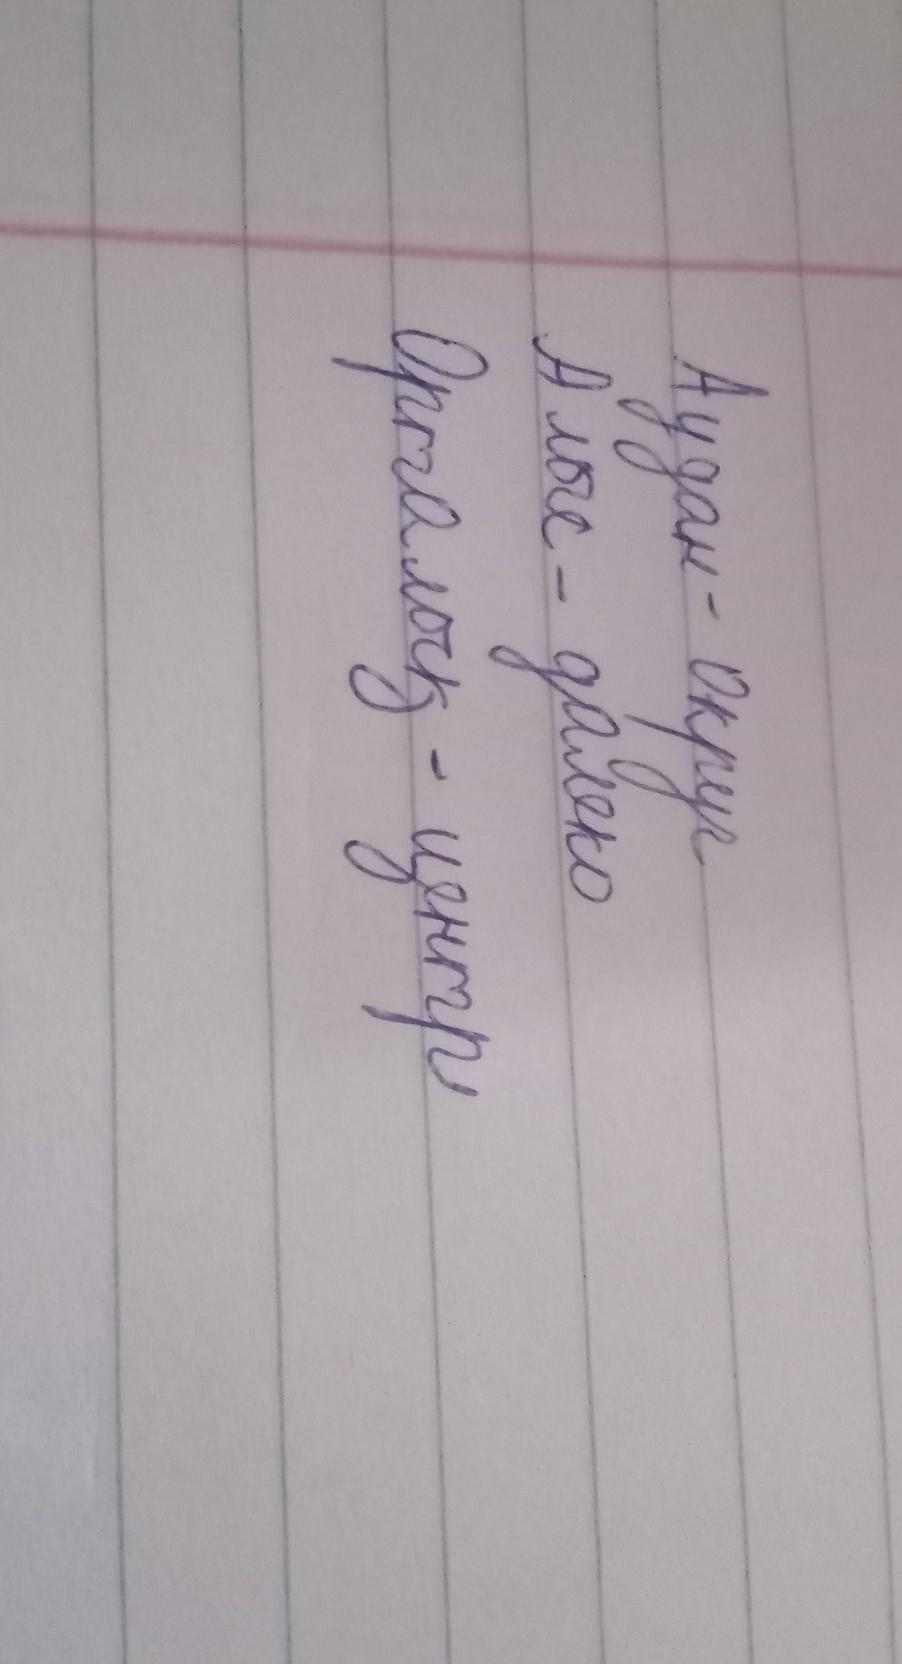 Аудан - округ
Алыс - далеко
Орталық - центр